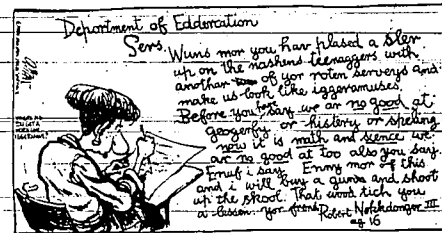 Department of Edderation
Sers.
Wuns mor you hav plased a sler
up on the nashens teenaggers with
another of yor roten serveys and
make us look like iggeramuses.
Before you have say we ar no good at
geogerfy or histery or speling
now it is math and sience we
ar no good at too also you say.
Enuf i say. Enny mor of this
and i will buy a gunn and shoot
up the skool. That wood tich you
a lesson. yor frend Robert Notchdanger III
ag 16